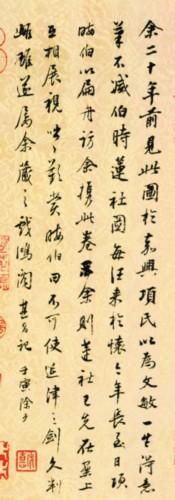 余二十年前見此圖於嘉興項氏以為文敏一生得意
筆不減伯時蓮社圖每往來於懷今年長至日項
晦伯以扁舟訪余攜此卷示余則蓮社已先在案上
互相展視咄咄歎賞晦伯曰不可使延津之劍久判
雌雄遂屬余藏之戲鴻閣其昌記壬寅除夕